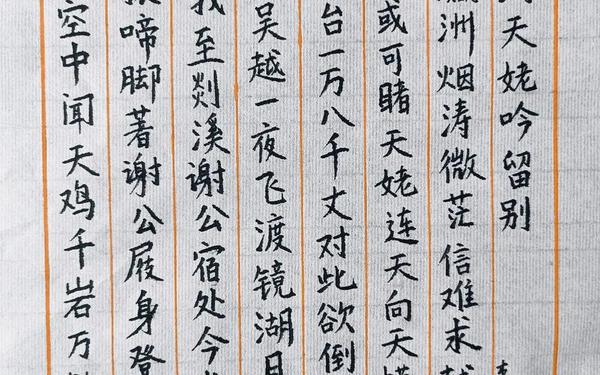 天姥吟留别
洲烟涛微茫信难求
或可睹天姥连天向天
台一万八千丈对此欲倒
吴越一夜飞渡镜湖月
我至剡溪谢公宿处今
啼脚著谢公屐身登
空中闻天鸡千岩万